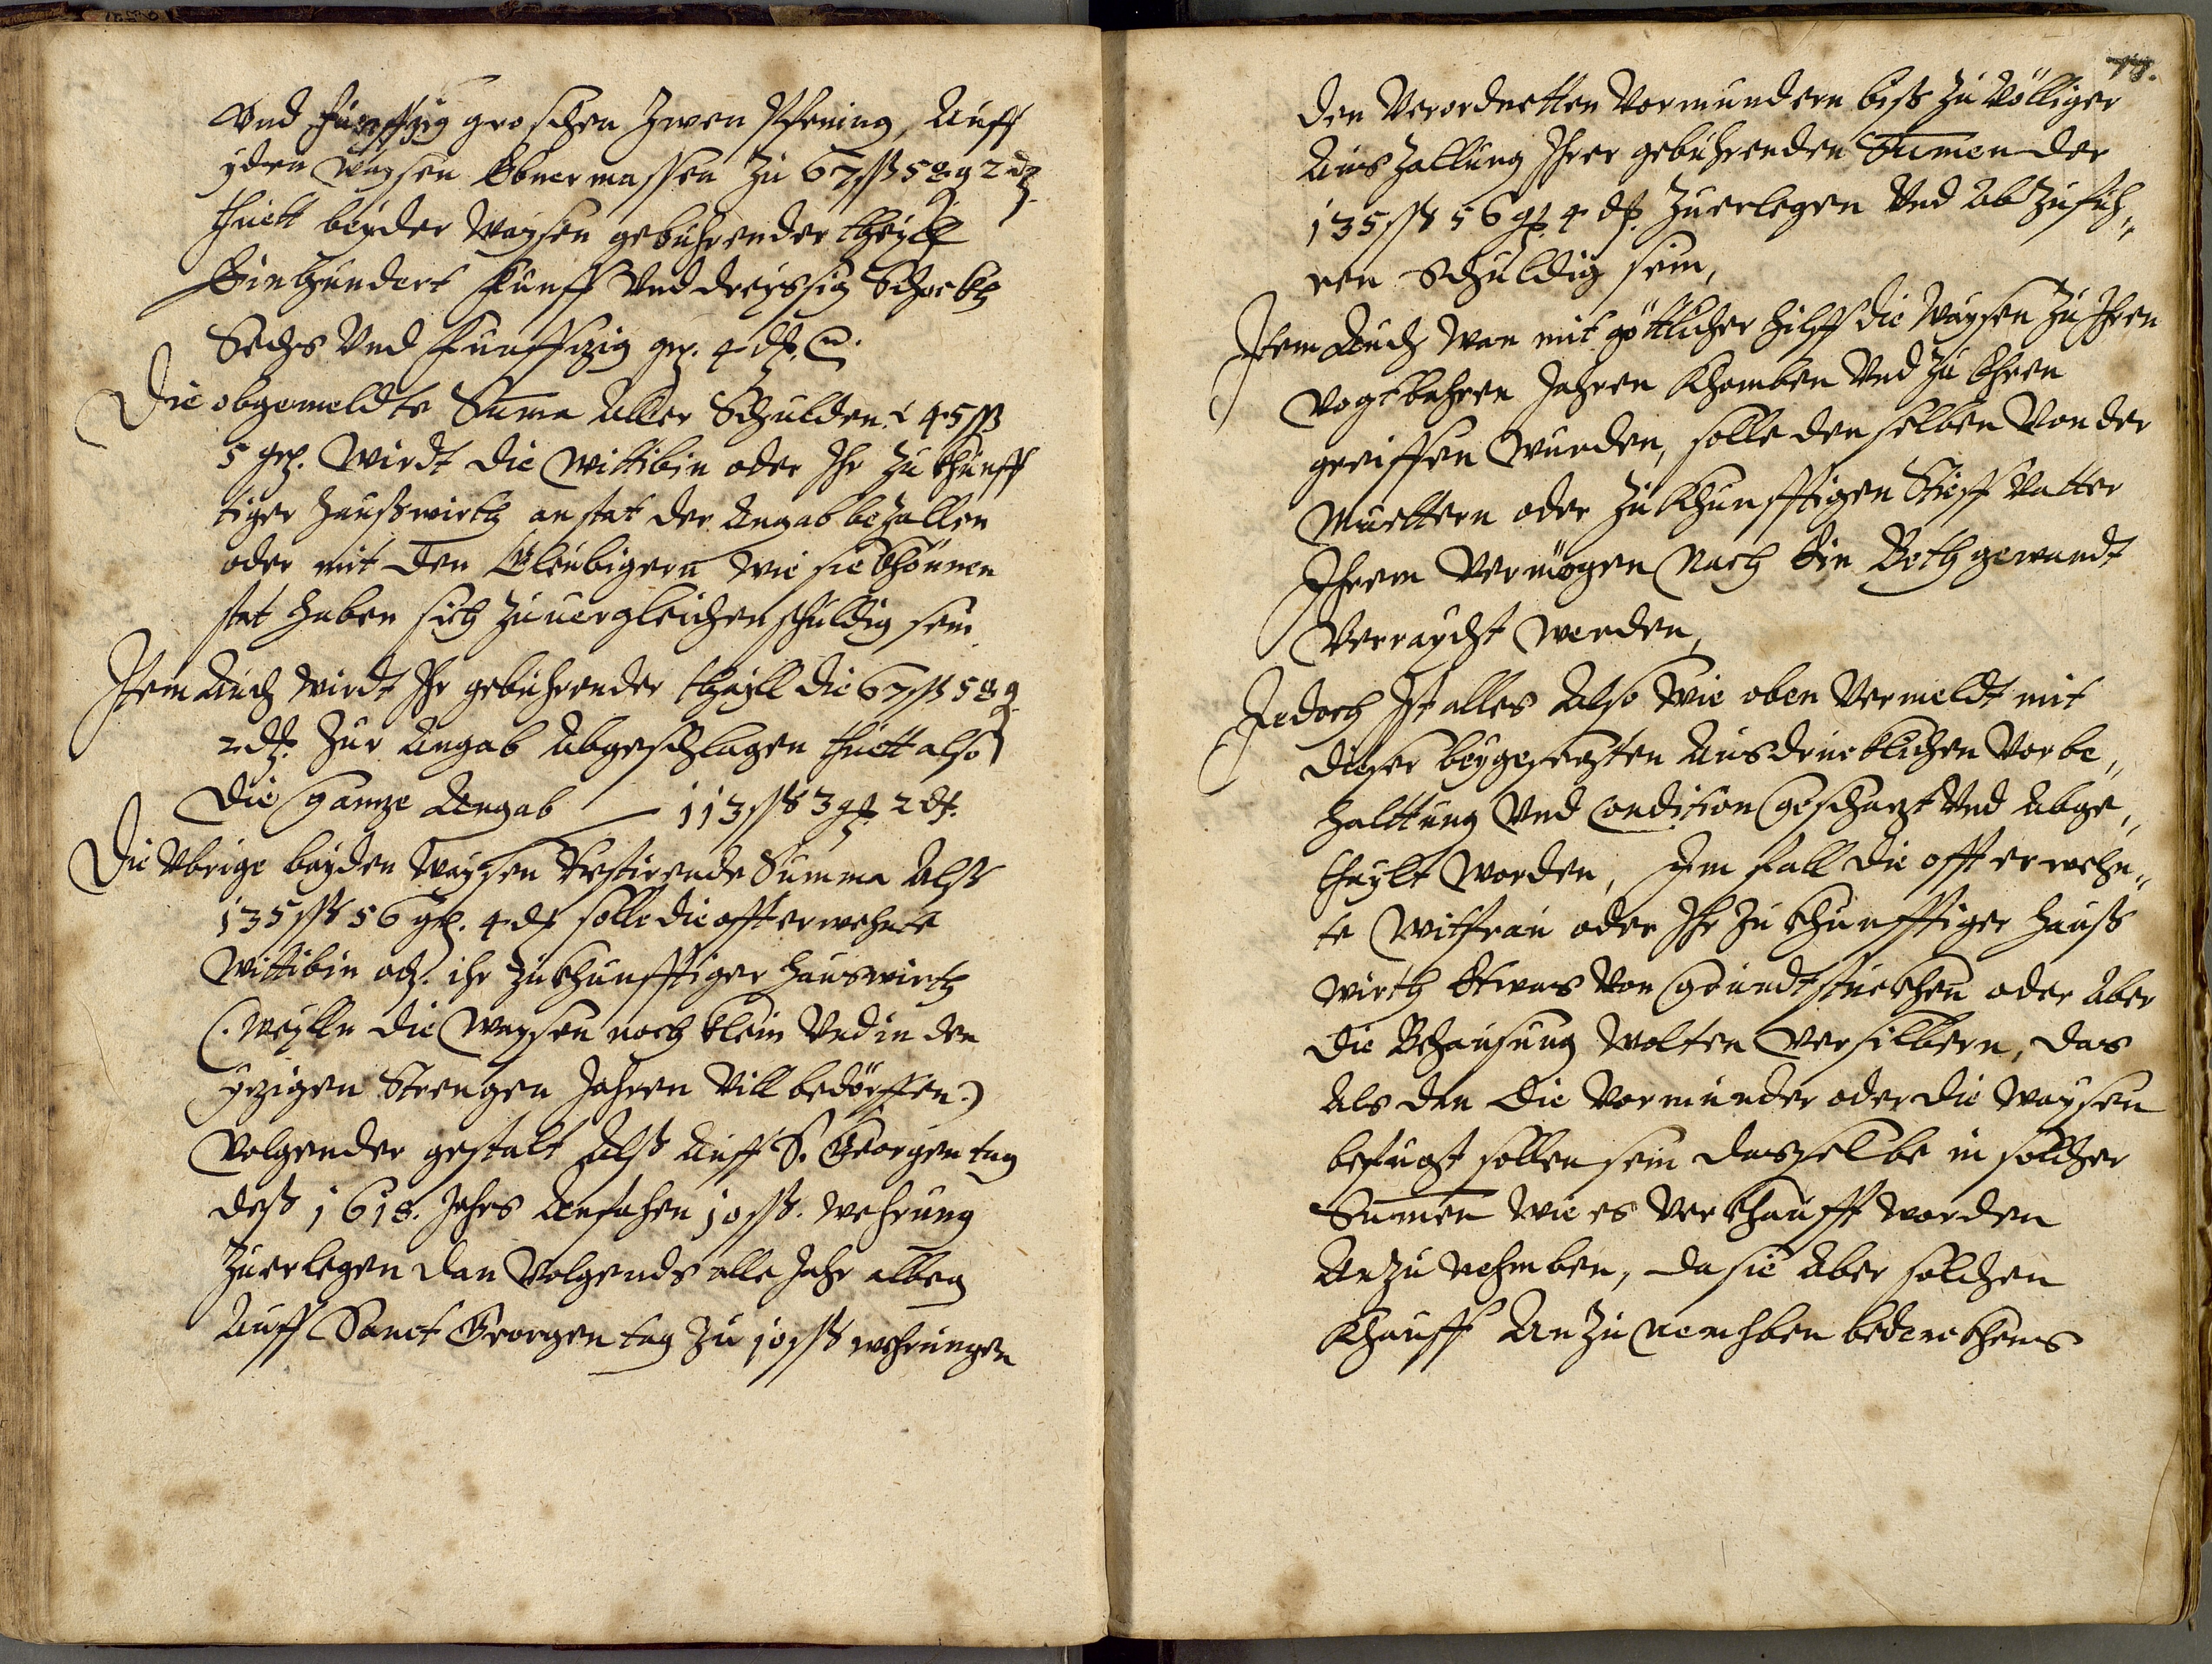 Vnd funffzig groschen Zwen Pfening, Auff
yden waysen Ebnermassen Zu 67 ss 58 g 2 d
thuett beyder Waysen gebuhrender theyll
Einhundert Funff Vnd dreyssig Schockh
Sechs Vnd Funffzig gr. 4 d.
Die obgemeldte Suma Aller Schulden 45 ss
5 gr. Wirdt die Wittibin oder Ihr Zukhunff
tiger Haußwirth anstat der Angab bezallen
oder mit den Gleubigern wie sie khönnen
stat haben sich Zuuergleichen schuldig sein
Item Auch wirdt Ihr gebuhrender theyll die 67 ss 58 g
2 d. Zur Angab Abgeschlagen thuett also
die gantze Angab — 113 ss 3 gr 2 d.
Die Vbrige beyden Waysen Restirende Summa Alß
135 ss 56 gr. 4 d solle die offterwehnte
Wittibin od. ihr Zukhunfftiger Hauswirth
(. Weylln die Waysen noch klein Vnd in den
ytzigen Strengen Jahren Vill bedörffen .)
Volgender gestalt Alß Auff S. Georgen tag
deß 1618. Jahrs Anfahen 10 ss. wehrung
Zuerlegen dan Volgends alle Jahr alben
Auff Sanct Georgen tag Zu 10 ss wehrungen
den Verordnetten Vormundern biß Zu Völliger
AusZallung Ihrer gebuhrenden Sumen der
135 ss 56 gr 4 d. Zuerlegen Vnd AbZufüh„
ren Schuldig sein,
Item Auch Wan mit göttlicher hilff die Waysen Zu Ihren
Vogtbahren Jahren Khomben Vnd Zu Ehren
greiffen Wurden, solle denselben Von der
Muettern oder Zukhunfftigen Stieff Vatter
Ihrem Vermögen Nach Ein Bethgewandt
Verraycht werden,
Jedoch Ist alles Also Wie oben Vermeldt mit
dieser beygesetzten Ausdrucklichen Vorbe„
halttung Vnd Condition Geschatzt Vnd Abge„
thaylt worden, Im fall die offt erwehn„
te Witfrau oder Ihr Zukhunfftiger Hauß
wirth Etwas Von Grundtstuckhen oder Aber
die Behausung Wolten Versilbern, das
Als dan die Vormunder oder die Waysen
befugt sollen sein dasselbe in solcher
Sumen wie es Verkhaufft worden
AnZunehmben, da sie Aber solchen
Khauff AnZunemhben bedenckhens